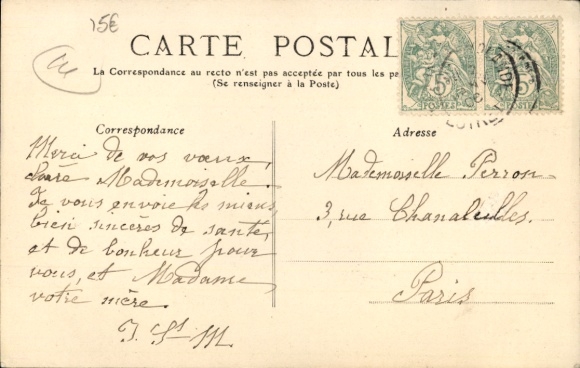 15€
CARTE POSTALE
La Correspondance au recto n'est pas acceptée par tous les pa
(Se renseigner à la Poste)
Correspondance
Adresse
Merci de vos vœux,
chère Mademoiselle.
Je vous envoie les miens,
bien sincères de santé,
et de bonheur pour
vous, et Madame
votre mère.
Mademoiselle Perron
3, rue Chanaleilles.
Paris
5
POSTES
5
POSTES